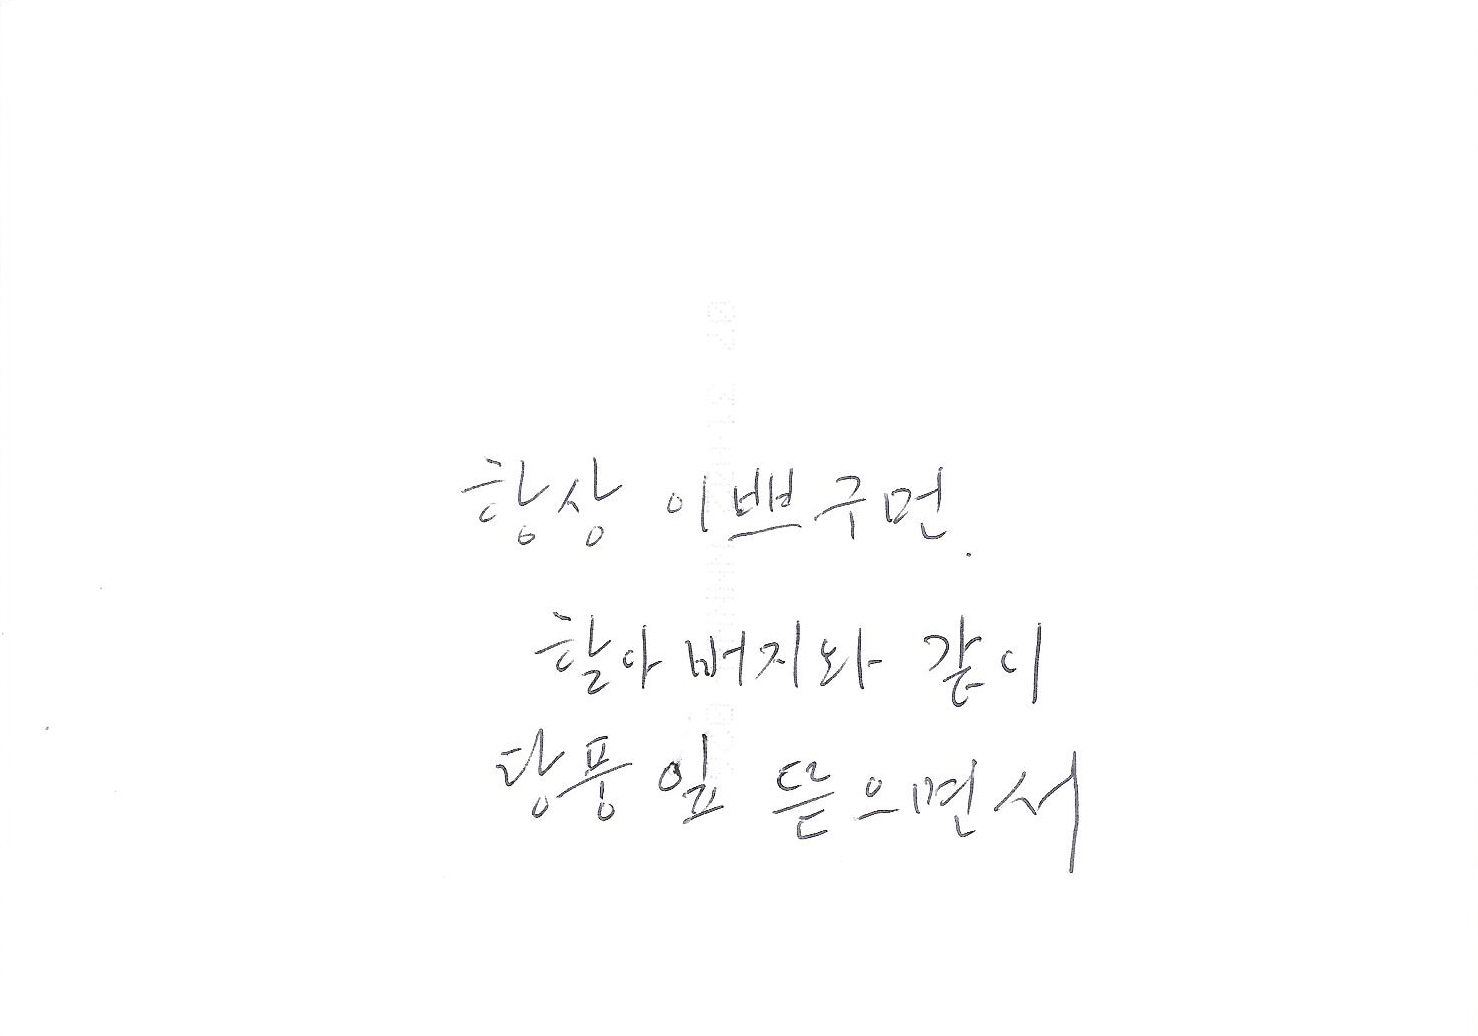 항상 이쁘구먼.
할아버지와 같이
당풍잎 뜯으면서